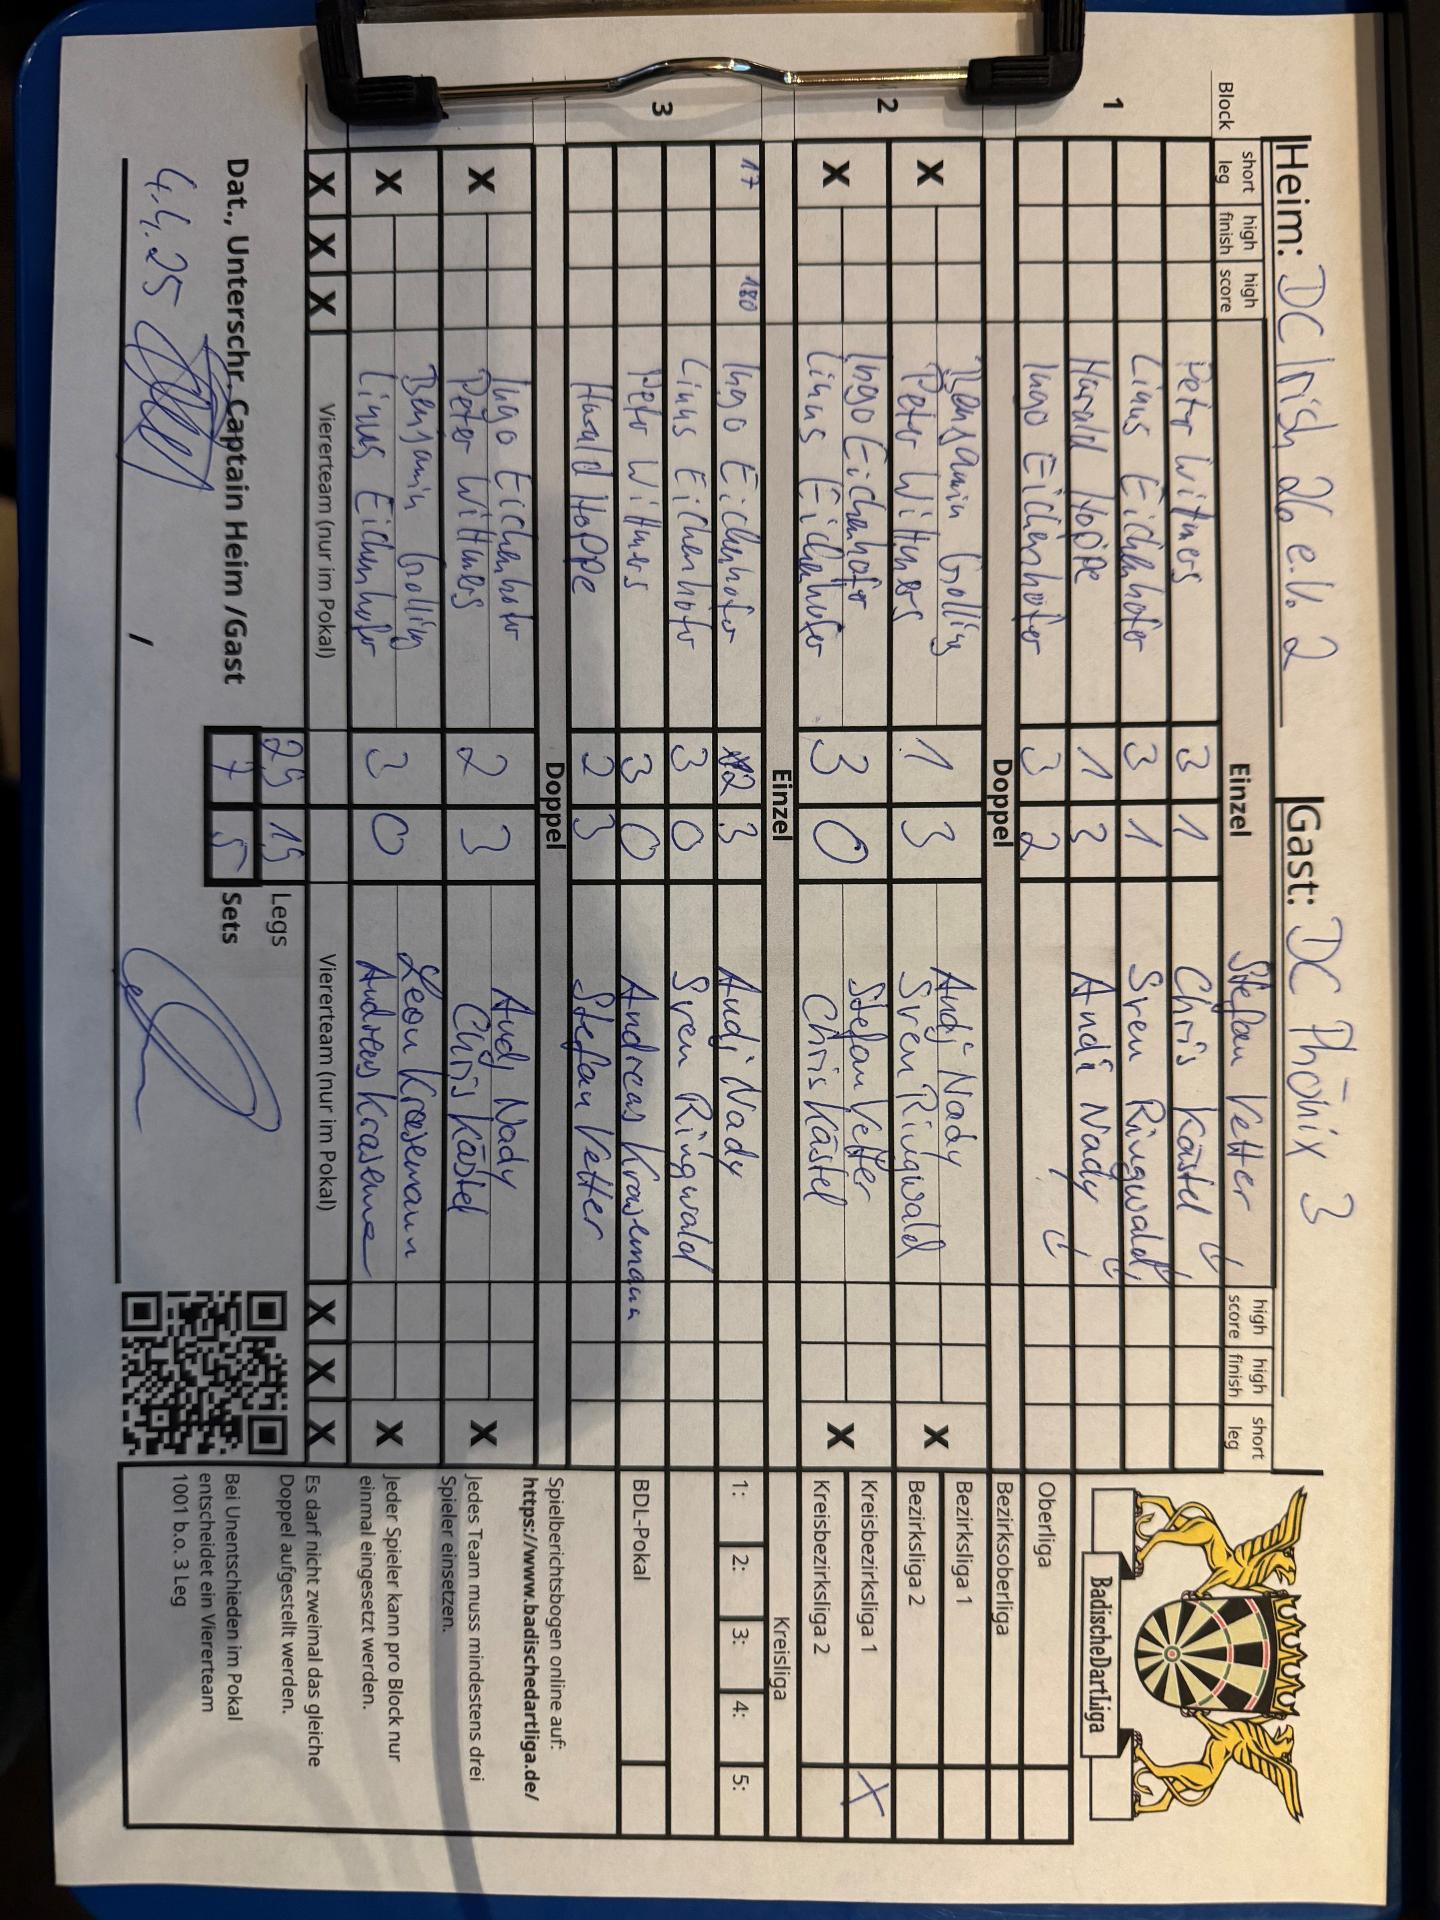 Heim: DC Irish 26 e.V. 2 Gast: DC Phönix 3
Block short leg high finish high score Einzel Stefan Vetter high score high finish short leg
1 Petr Witmers 3 1 Chris Kästel
Linus Eichenhofer 3 1 Sven Ringwald
Harald Hoppe 1 3 Andi Nady
Ingo Eichenhofer 3 2
Doppel
2 X Benjamin Golling 1 3 Andi Nady X
Peter Wittmers Sven Ringwald
X Ingo Eichenhofer 3 0 Stefan Vetter X
Linus Eichenhofer Chris Kästel
Einzel
3 17 180 Ingo Eichenhofer 2 3 Andi Nady
Linus Eichenhofer 3 0 Sven Ringwald
Petr Wittmers 3 0 Andreas Krasemann
Harald Hoppe 2 3 Stefan Vetter
Doppel
X Ingo Eichenhofer 2 3 Andj Nady X
Peter Wittmers Chris Kästel
X Benjamin Golling 3 0 Leon Krasemann X
Linus Eichenhofer Andreas Krasemann
X X X Viererteam (nur im Pokal) Viererteam (nur im Pokal) X X X
29 19 Legs
Dat., Unterschr. Captain Heim /Gast 7 5 Sets
4.4.25 ,
BadischeDartLiga
Oberliga
Bezirksoberliga
Bezirksliga 1
Bezirksliga 2
Kreisbezirksliga 1 X
Kreisbezirksliga 2
Kreisliga
1: 2: 3: 4: 5:
BDL-Pokal
Spielberichtsbogen online auf:
https://www.badischedartliga.de/
Jedes Team muss mindestens drei
Spieler einsetzen.
Jeder Spieler kann pro Block nur
einmal eingesetzt werden.
Es darf nicht zweimal das gleiche
Doppel aufgestellt werden.
Bei Unentschieden im Pokal
entscheidet ein Viererteam
1001 b.o. 3 Leg